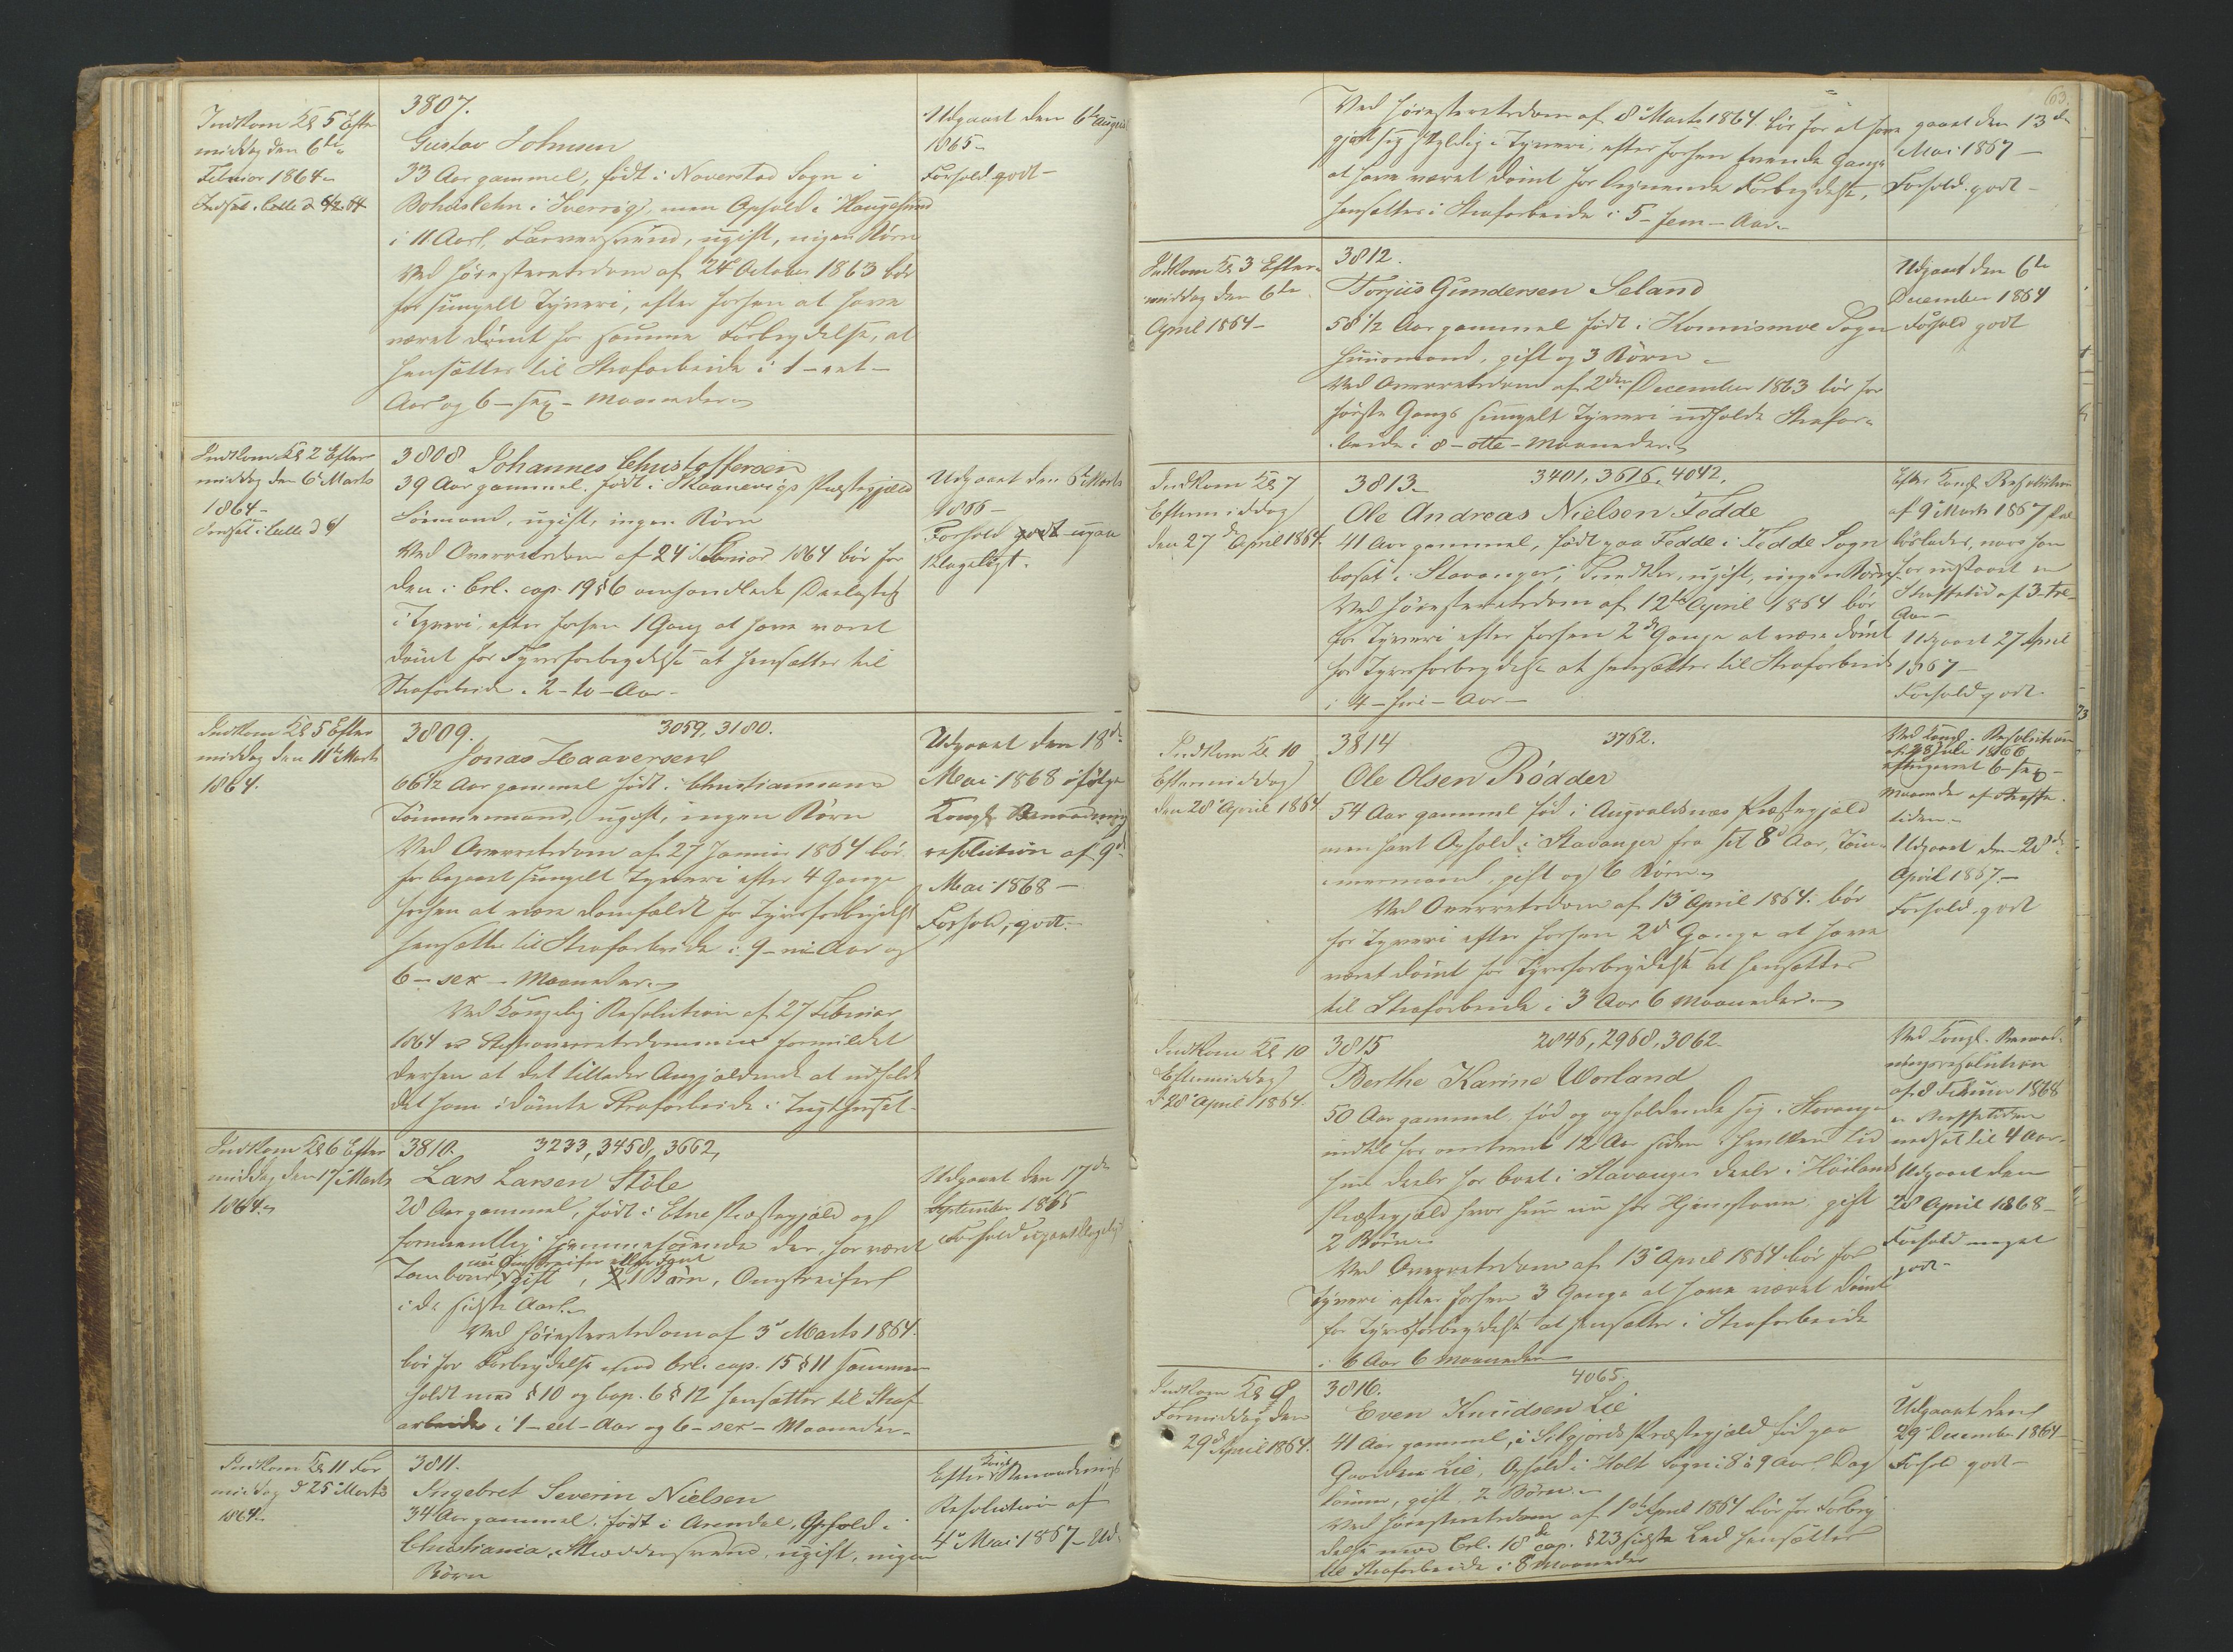 Indkom Kl 5 Efter
middag den 6te
Februar 1864
Indsat i Celle d 6/2 64
3807.
Gustav Johnsen
33 Aar gammel, født i Naverstad Sogn i
Bohuslehn i Sverrig, men Ophold i Haugesund
i 11 Aar, Farversvend, ugift, ingen Børn
Ved Høiesteretsdom af 24de October 1863 bør
for simpelt Tyveri, efter forhen at have
været dømt for samme Forbrydelse, at
hensættes til Strafarbeide i 1 - eet -
Aar og 6 - sex - Maaneder.
Udgaaet den 6te August
1865 -
Forhold godt -
Indkom Kl 2 Efter
middag den 6te Marts
1864 -
Indsat i Celle d 6/
3808 Johannes Christoffersen
39 Aar gammel. født i Skaanevigs Præstegjæld
Sømand, ugift, ingen Børn
Ved Overretsdom af 24de Februar 1864 bør for
den i Crl. cap. 19 § 6 omhandlede Deelagtighed
i Tyveri, efter forhen 1 Gang at have været
dømt for Tyvsforbrydelse at hensættes til
Strafarbeide i 2 - to - Aar -
Udgaaet den 6te Marts
1866 -
Forhold godt upaa
klageligt.
Indkom Kl 5 Efter
middag den 11te Marts
1864.
3809. 3059, 3180.
Jonas Haaversen
66 1/2 Aar gammel født i Christianssand
Tømmermand, ugift, ingen Børn
Ved Overretsdom af 27 Januar 1864 bør
for begaaet simpelt Tyveri efter 4 Gange
forhen at være domfældt for Tyvsforbrydelse
hensættes til Strafarbeide i 9 - ni - Aar og
6 - sex - Maaneder.
Ved Kongelig Resolution af 27 Februar
1864 er Stiftsoverretsdommen formildet
derhen at det tillades Angjældende at udholde
det ham idømte Strafarbeide i Tugthuset -
Udgaaet den 18de
Mai 1868 ifølge
Kongl. Benaadnings
resolution af 9de
Mai 1868 -
Forhold, godt. -
Indkom Kl 6 Efter
middag den 17de Marts
1864.
3810. 3233, 3458, 3662,
Lars Larsen Støle
28 Aar gammel, født i Etne Præstegjæld og
formentlig hjemmehørende der, har været
nu Omstreifer
Tambour, gift, 1 Barn, Omstreifer
i de sidste Aar.
Ved Høiesteretsdom af 3de Marts 1864.
bør for Forbrydelse mod Crl. cap. 15 § 11 sammen
holdt med § 10 og Cap. 6 § 12 hensættes til Straf
arbeide i 1 - eet - Aar og 6 - sex - Maaneder -
Udgaaet den 17de
September 1865
Forhold upaaklageligt
Indkom Kl 11 For
middag d 25de Marts
1864.
3811.
Ingebret Severin Nielsen
34 Aar gammel. født i Arendal, Ophold i
Christiania, Skræddersvend, ugift, ingen
Børn
Efter Kongl. Benaadnings
Resolution af
4de Mai 1867 - Ud-
63.
Ved Høiesteretsdom af 8de Marts 1864 bør for at have
gjort sig skyldig i Tyveri, efter forhen trende Gange
at have været dømt for lignende Forbrydelse,
hensættes i Strafarbeide i 5 - fem - Aar.
gaaet den 13de
Mai 1867 -
Forhold godt -
Indkom Kl 3 Efter
middag den 6te
April 1864 -
3812.
Torjus Gundersen Seland
58 1/2 Aar gammel født i Konnismoe Sogn
Huusmand, gift og 3 Børn
Ved Overretsdom af 2den December 1863 bør for
første Gangs simpelt Tyveri udholde Strafar-
beide i 8 - otte - Maaneder.
Udgaaet den 6te
December 1864
Forhold godt
Indkom Kl 7
Eftermiddag
den 27de April 1864.
3813. 3401, 3616, 4042.
Ole Andreas Nielsen Fedde
41 Aar gammel, født paa Fedde i Fedde Sogn
bosat i Stavanger, Snedker, ugift, ingen Børn
Ved Høiesteretsdom af 12te April 1864 bør
for Tyveri efter forhen 2de Gange at være dømt
for Tyvsforbrydelse at hensættes til Strafarbeide
i 4 - fire - Aar -
Efter Kongl. Resolution
af 9de Marts 1867
løslades, naar han
har udstaaet en
Straffetid af 3 - tre -
Aar -
Udgaaet 27 April
1867 -
Forhold godt.
Indkom Kl 10
Eftermiddag
den 28de April 1864
3814 3762.
Ole Olsen Rødder
54 Aar gammel fød i Augvaldsnæs Præstegjæld
men havt Ophold i Stavanger fra sit 8de Aar, Tøm-
mermand, gift og 6 Børn
Ved Overretsdom af 13de April 1864. bør
for Tyveri efter forhen 2de Gange at have
været dømt for Tyvsforbrydelse at hensættes
til Strafarbeide i 3 Aar 6 Maaneder.
Ved Kongl. Resolution
af 28 Juli 1866
eftergivet 6 - sex -
Maaneder af Straffe
tiden. -
Udgaaet den 28de
April 1867. -
Forhold godt
Indkom Kl 10
Eftermiddag
d 28de April 1864.
3815 2846, 2968, 3062.
Berthe Karine Worland
50 Aar gammel, fød og opholdende sig i Stavanger
indtil for omtrent 12 Aar siden i hvilken Tid
hun deels har boet i Stavanger deels i Høilands
Præstegjæld hvor hun nu har Hjemstavn, gift
2 Børn
Ved Overretsdom af 13de April 1864 bør for
Tyveri efter forhen 3 Gange at have været dømt
for Tyvsforbrydelse at hensættes i Strafarbeide
i 6 Aar 6 Maaneder
Ved Kongl. Benaad-
ningsresolution
af 8 Februar 1868
er Straffetiden
nedsat til 4 Aar.
Udgaaet den
28 April 1868 -
Forhold meget
godt -
Indkom Kl 9
Formiddag den
29de April 1864.
3816. 4065.
Even Knudsen Lie
41 Aar gammel, i Silgjords Præstegjæld fød paa
Gaarden Lie, Ophold i Holt Sogn i 8 à 9 Aar, Dag
lønner, gift, 2 Børn.
Ved Høiesteretsdom af 1ste April 1864 bør for Forbry
delse mod Crl. 18de cap. § 23 sidste Led hensættes
til Strafarbeide i 8 Maaneder
Udgaaet den
29de December 1864 -
Forhold godt -